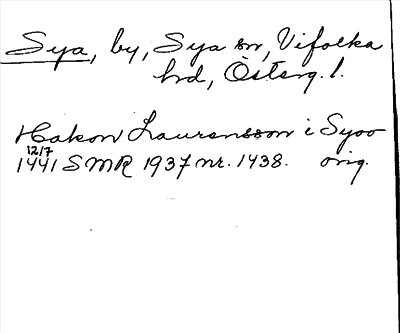 Sya, by, Sya sn, Vifolka
hd, Österg. l.
Hakon Laurensson i Syoo
12/7
1441 SMR 1937 nr. 1438. orig.